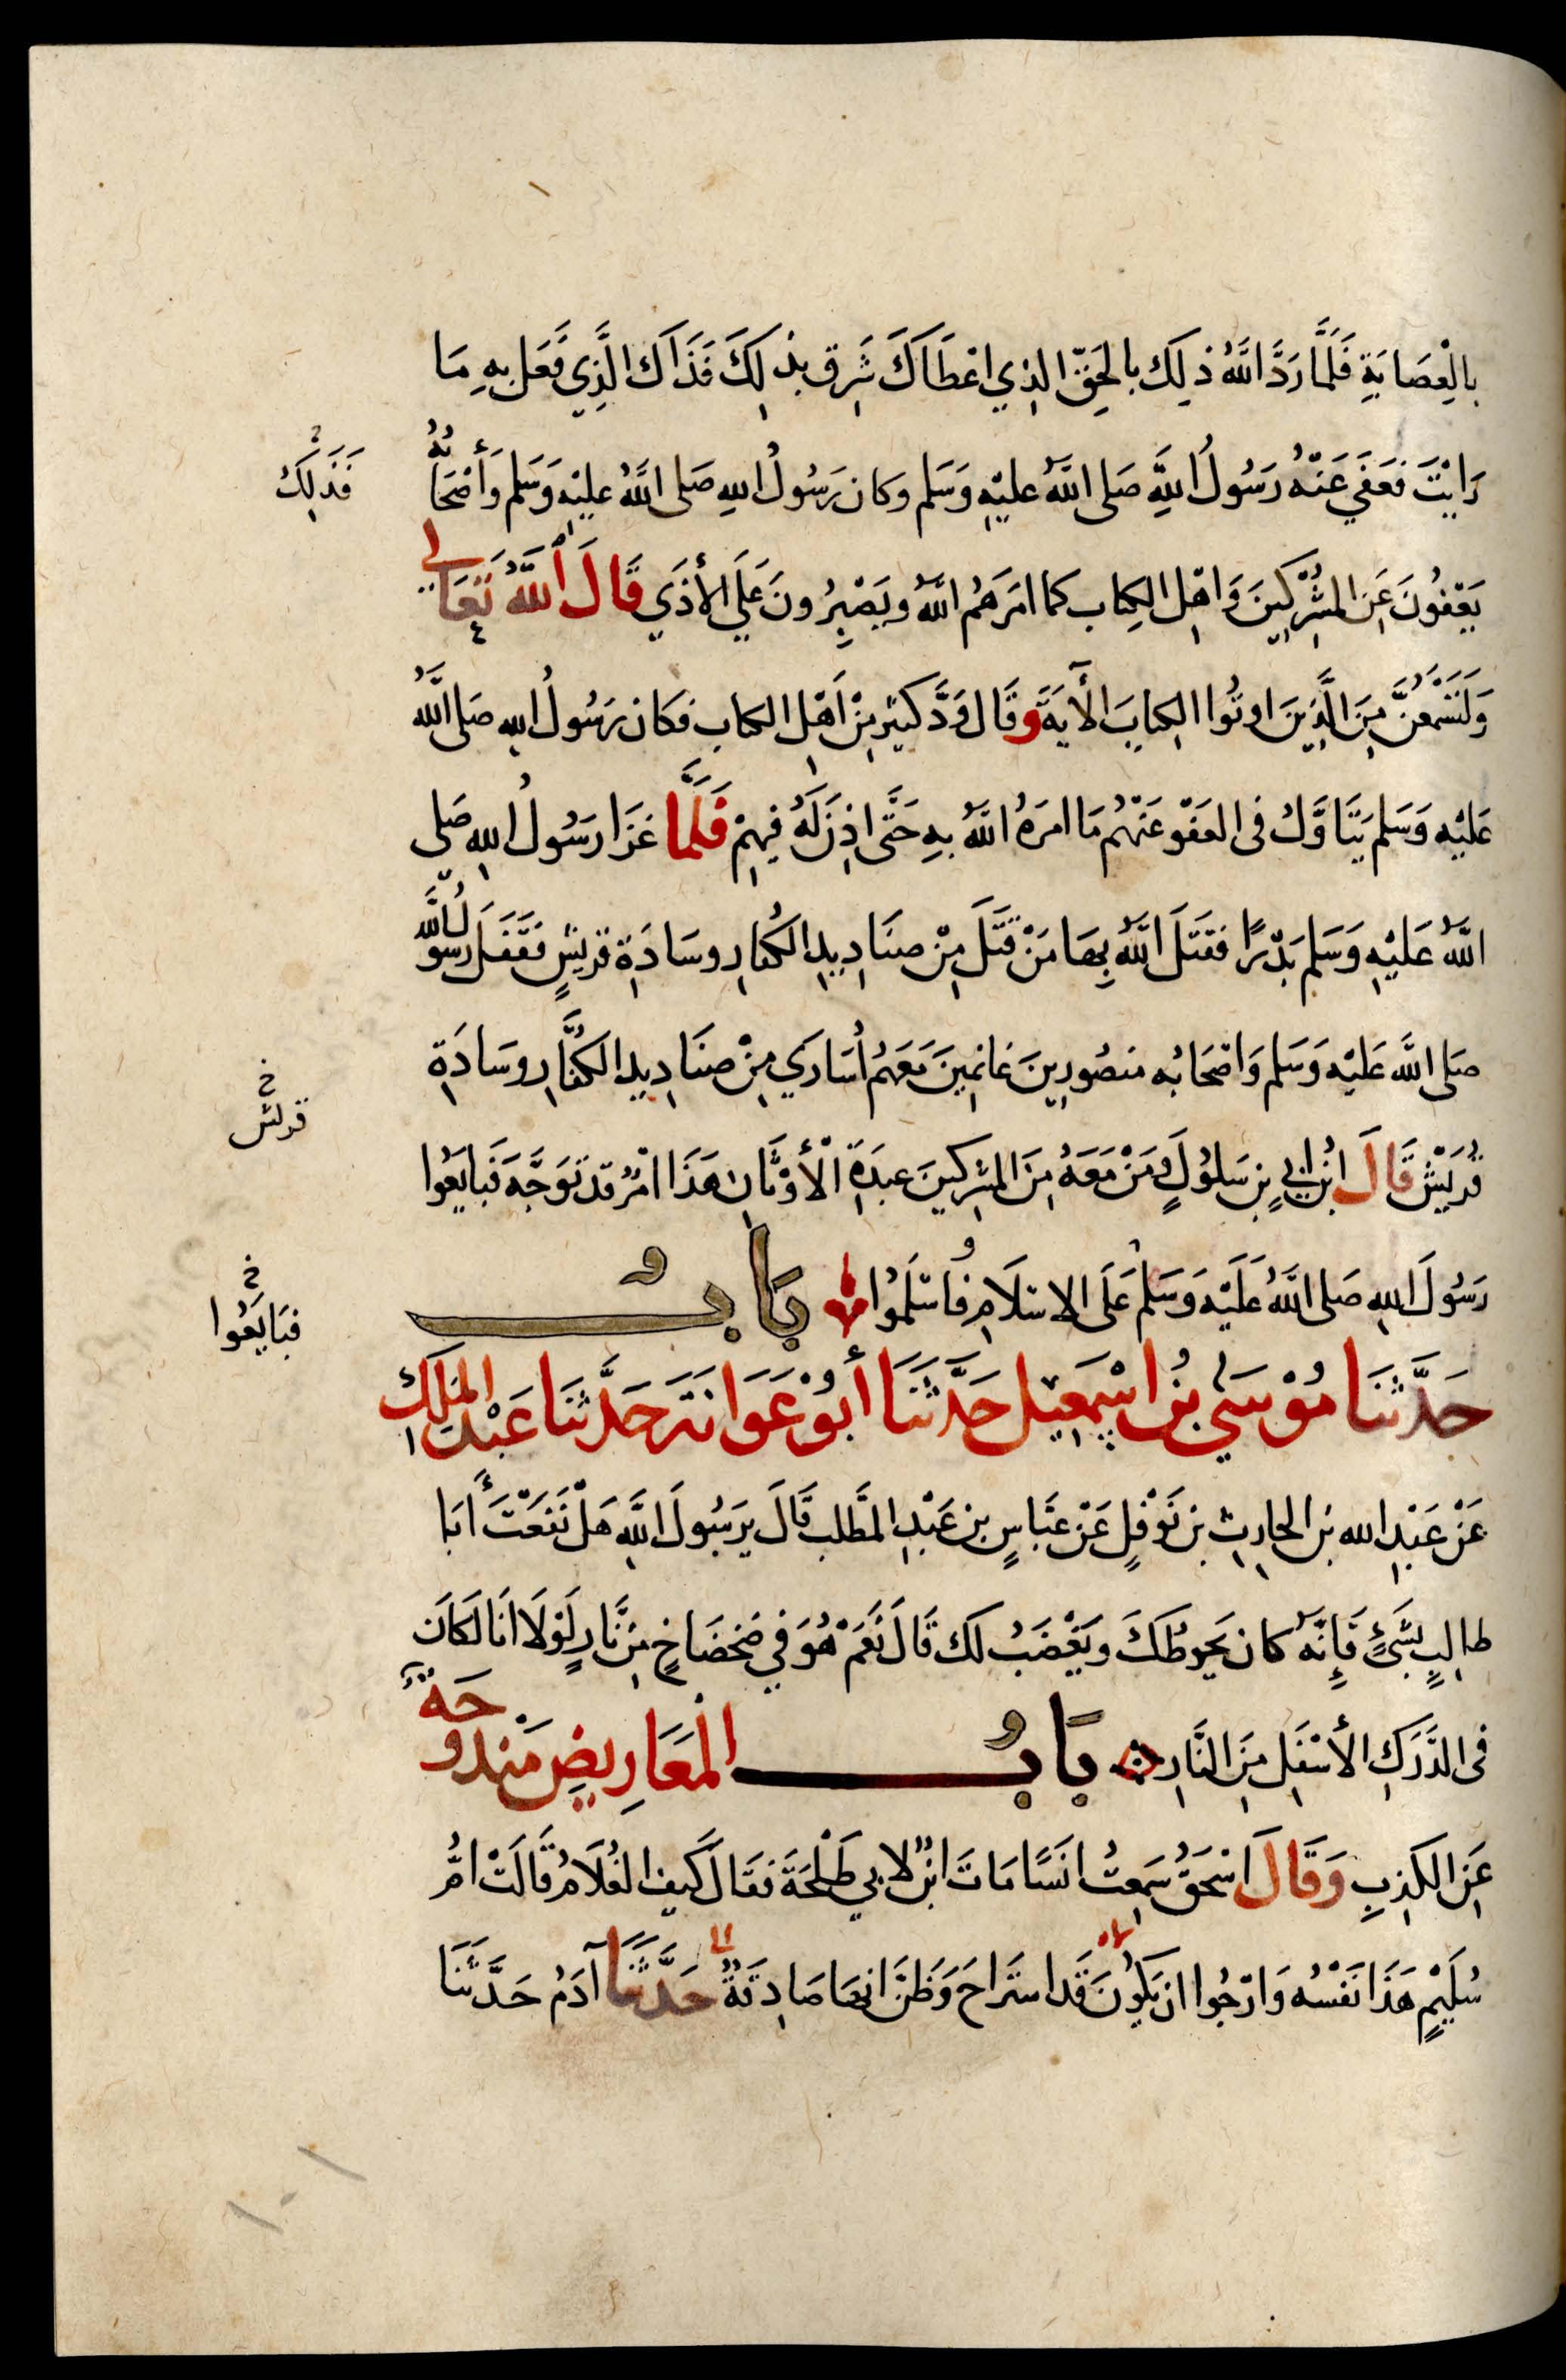 بِالْعِصَابَةِ فَلَمَّا رَدَّ اللَّهُ ذلِكَ بالحَقِّ الذِي اعْطَاكَ شَرِقَ بِذلِكَ فَذَاكَ الَّذِي فَعَلَ بِهِ مَا
رَايْتَ فَعَفَي عَنْهُ رَسُولُ اللَّهِ صَلى اللَّهُ عليْهِ وَسَلم وكان رَسُولُ اللهِ صَلى اللَّهُ عليْهِ وَسَلم وَأَصْحَابُهُ
فَذَلِكَ
يَعْفُونَ عَنِ المُشْرِكِينَ وَاهْلِ الكِتاب كما امَرَهُم اللَّهُ ويَصْبِرُونَ عَلَي الأذَي قَالَ اللَّهُ تَعَالى
وَلَتَسْمَعُنَّ مِنَ الَّذِينَ اوتُوا الكِتابَ الأيَةَ وقَالَ وَدَّ كثيرٌ مِنْ اَهْلِ الكتابِ فكان رَسُولُ اللهِ صَلى اللَّهُ
عَليْهِ وَسَلم يَتَاوَّلُ فى العَفْوِ عَنْهُم مَا امَرَهُ اللَّهُ بِهِ حَتَّى اذِنَ لَهُ فِيهِمْ فَلَمَّا غزَا رَسُولُ اللهِ صَلى
اللَّهُ عَليْهِ وَسَلم بَدْرًا فقَتَلَ اللَّهُ بِهَا مَنْ قَتَلَ مِنْ صنَادِيدِ الكُفارِ وسَادَةِ قريْشٍ فَقَفَلَ رسُولُ اللَّه
صَلى اللَّه عَليْهِ وَسَلم وَاصْحَابُه منصُورِينَ غانِمِينَ مَعَهُم اُسَارَي مِنْ صنَادِيدِ الكُفَّارِ وسَادَةِ
خ
قريش
قُرَيْش قَالَ ابْنُ ابيٍ بن سَلُولٍ وَمَنْ مَعَهُ مِنَ المشْرِكينَ عبَدَةِ الْأَوْثَانِ هَذَا امْرٌ قد تَوَجَّهَ فَبايَعُوا
رَسُولَ اللهِ صَلى اللَّهُ عَلَيْهِ وَسَلم عَلَى الاسْلَامِ فَاسْلَمُوا بَابُ
خ
فبَايَعُوا
حَدَّثنَا مُوْسَى بنُ اسْمَعِيل حَدَّثَنَا أبُوْ عَوَانَة حَدَّثنَا عَبْدُ المَلِكِ
عَنْ عَبْدِ الله بْن الحارِثِ بن نَوْفلٍ عَنْ عَبَّاسٍ بن عَبْدِ المطَّلب قَالَ يرَسُولَ اللَّهِ هَلْ نَفَعْتَ أَبَا
طالِبٍ بِشَيْءٍ فَإِنَّهُ كان يَحُوطُكَ ويَغْضَبُ لك قَالَ نَعَمْ هُوَ في ضَحْضَاحٍ مِنْ نَّارٍ لَوْلَا انَا لَكَانَ
فى الدَّرَكِ الأَسْفَلِ مِنَ النَّارِ بَابُ الْمَعَارِيضِ مَنْدُوحَةٌ
عَنِ الكَذِبِ وَقَالَ اسْحَقُ سَمِعتُ انَسًا مَاتَ ابْنٌ لابي طَلْحَةَ فقَالَ كَيف الغُلَامُ قَالَتْ امُّ
سُلَيْمٍ هَدَا نَفْسُه وَارْجُوا ان يَكُونَ قَد استَرَاحَ وَظَنَّ انهَا صَادِقَةٌ حَدَّثَنَا آدَمُ حَدَّثَنَا